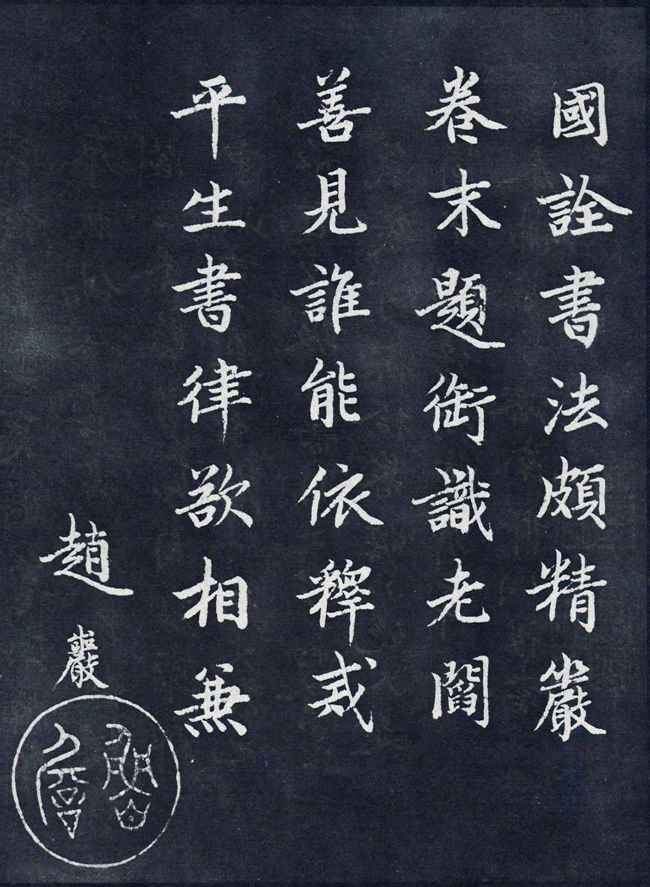 國詮書法頗精嚴
卷末題銜識老閻
善見誰能依釋戒
平生書律欲相兼
趙巖